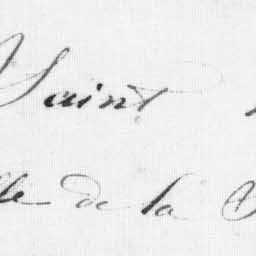 Saint
lle de la